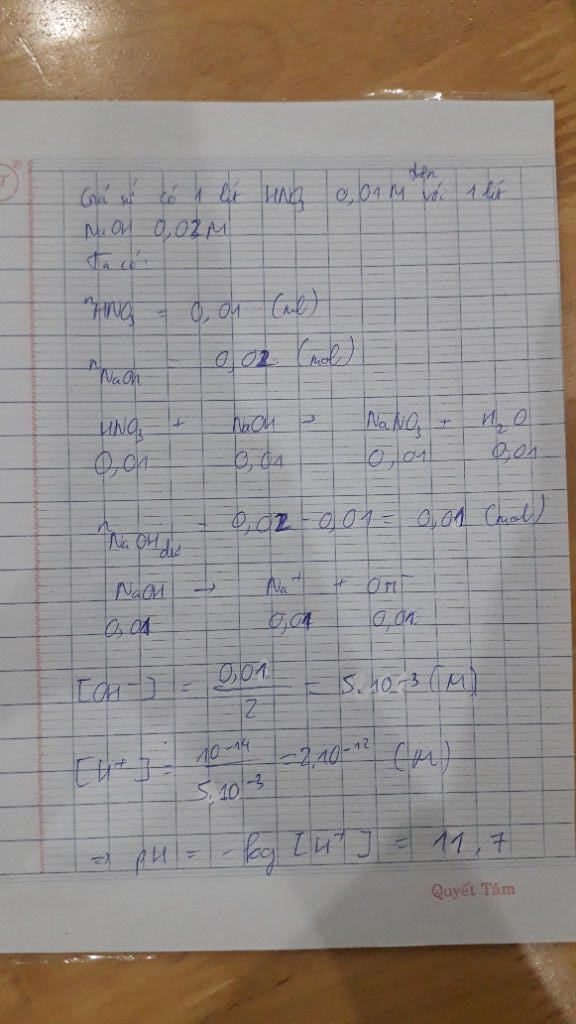 Giả sử có 1 lít HNO3 0,01M trộn với 1 lít
NaOH 0,02M
Ta có:
nHNO3 = 0,01 (mol)
nNaOH = 0,02 (mol)
HNO3 + NaOH → NaNO3 + H2O
0,01 0,01 0,01 0,01
nNaOH dư = 0,02 - 0,01 = 0,01 (mol)
NaOH → Na+ + OH-
0,01 0,01 0,01
[OH-] = 0,01/2 = 5.10^-3 (M)
[H+] = 10^-14/5.10^-3 = 2.10^-12 (M)
=> pH = -log [H+] = 11,7
Quyết Tâm